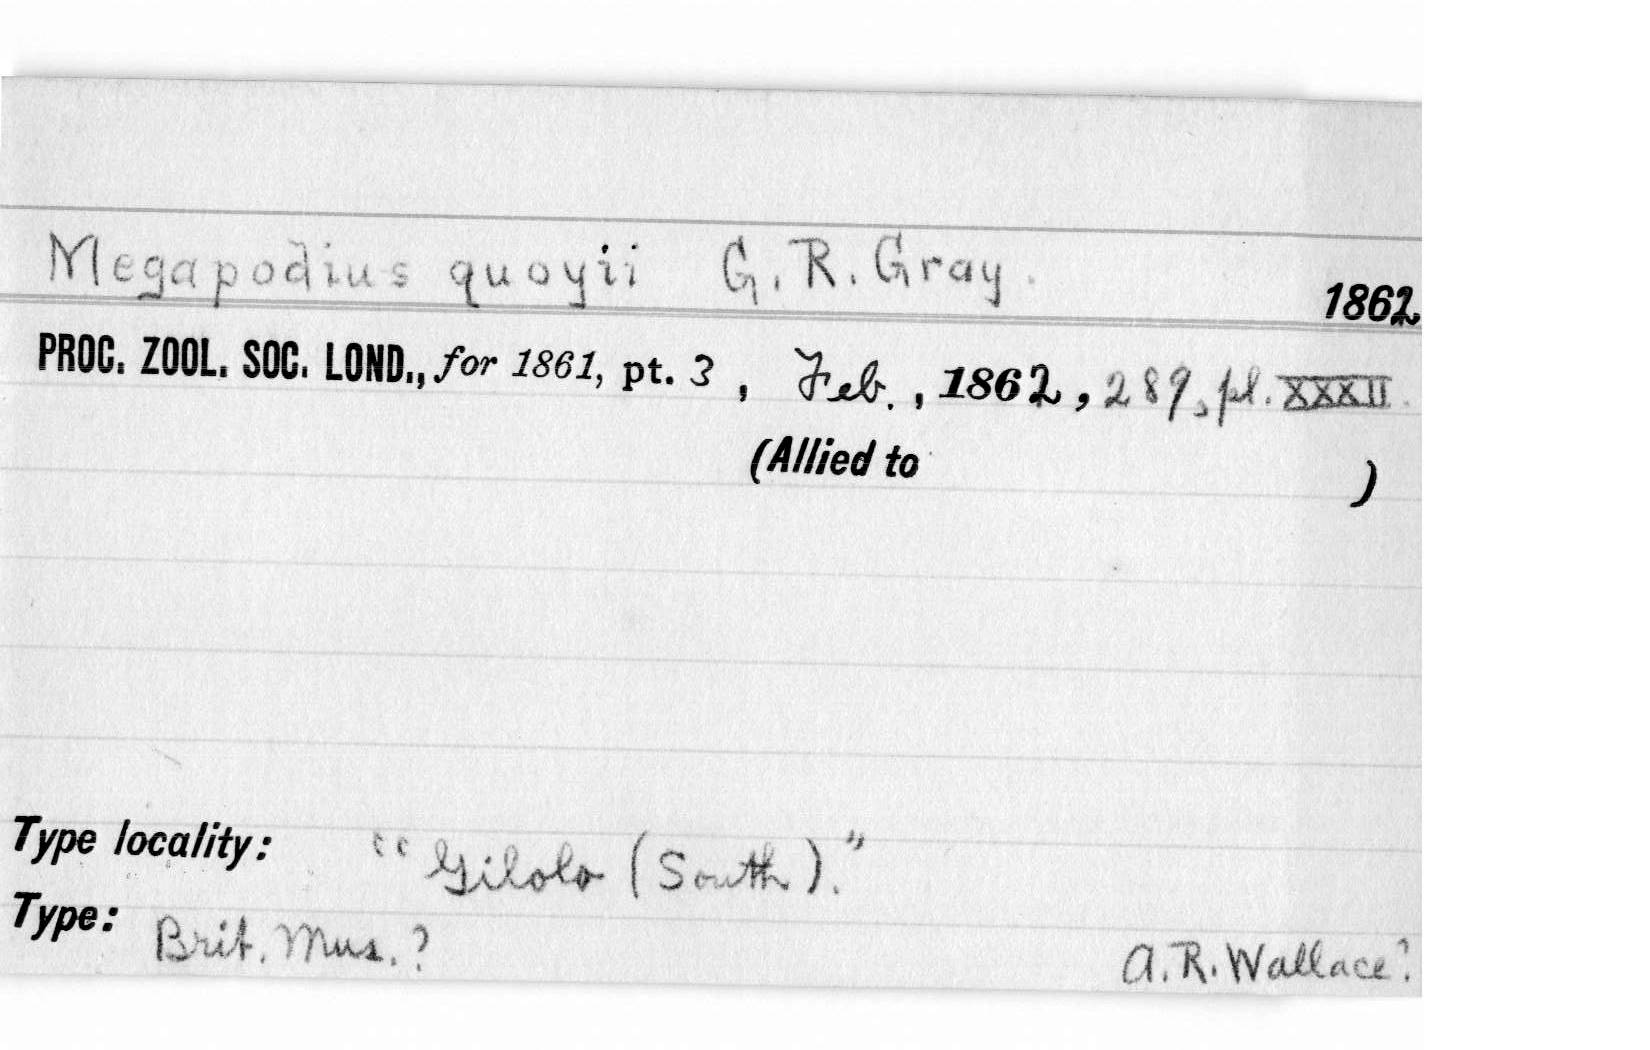 Megapodius quoyii G. R. Gray.
1862
PROC. ZOOL. SOC. LOND., for 1861, pt. 3, Feb., 1862, 289, pl. XXXII.
(Allied to )
Type locality: "Gilolo (South)."
Type: Brit. Mus.? A. R. Wallace?